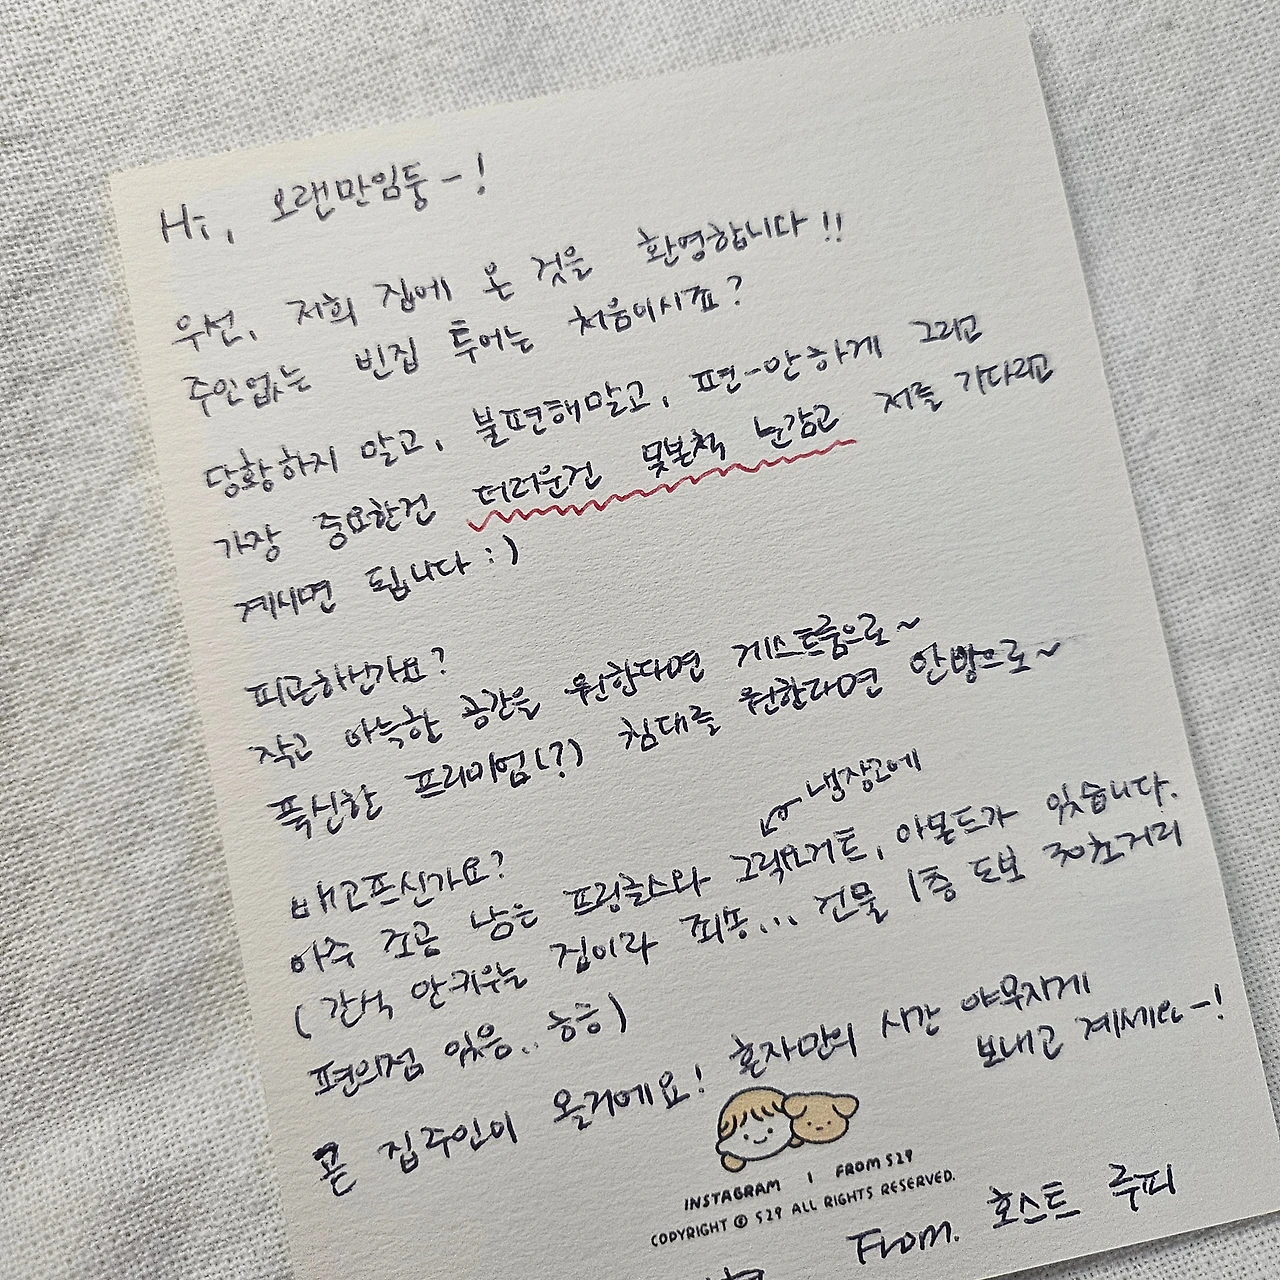 Hi, 오랜만임둥-!
우선, 저희 집에 온 것을 환영합니다!!
주인없는 빈집 투어는 처음이시죠?
당황하지 말고, 불편해말고, 편-안하게 그리고
가장 중요한건 더러운건 못본척 눈감고 저를 기다리고
계시면 됩니다 :)
피곤하신가요?
작고 아늑한 공간을 원한다면 게스트룸으로~
푹신한 프리미엄(?) 침대를 원한다면 안방으로~
냉장고에
배고프신가요?
아주 조금 남은 프링글스와 그릭요거트, 아몬드가 있습니다.
(간식 안키우는 집이라 죄송... 건물 1층 도보 30초거리
편의점 있음.. ㅎㅎ)
곧 집주인이 올거에요! 혼자만의 시간 야무지게
보내고 계세요-!
INSTAGRAM | FROM 529
COPYRIGHT © 529 ALL RIGHTS RESERVED.
From. 호스트 루피